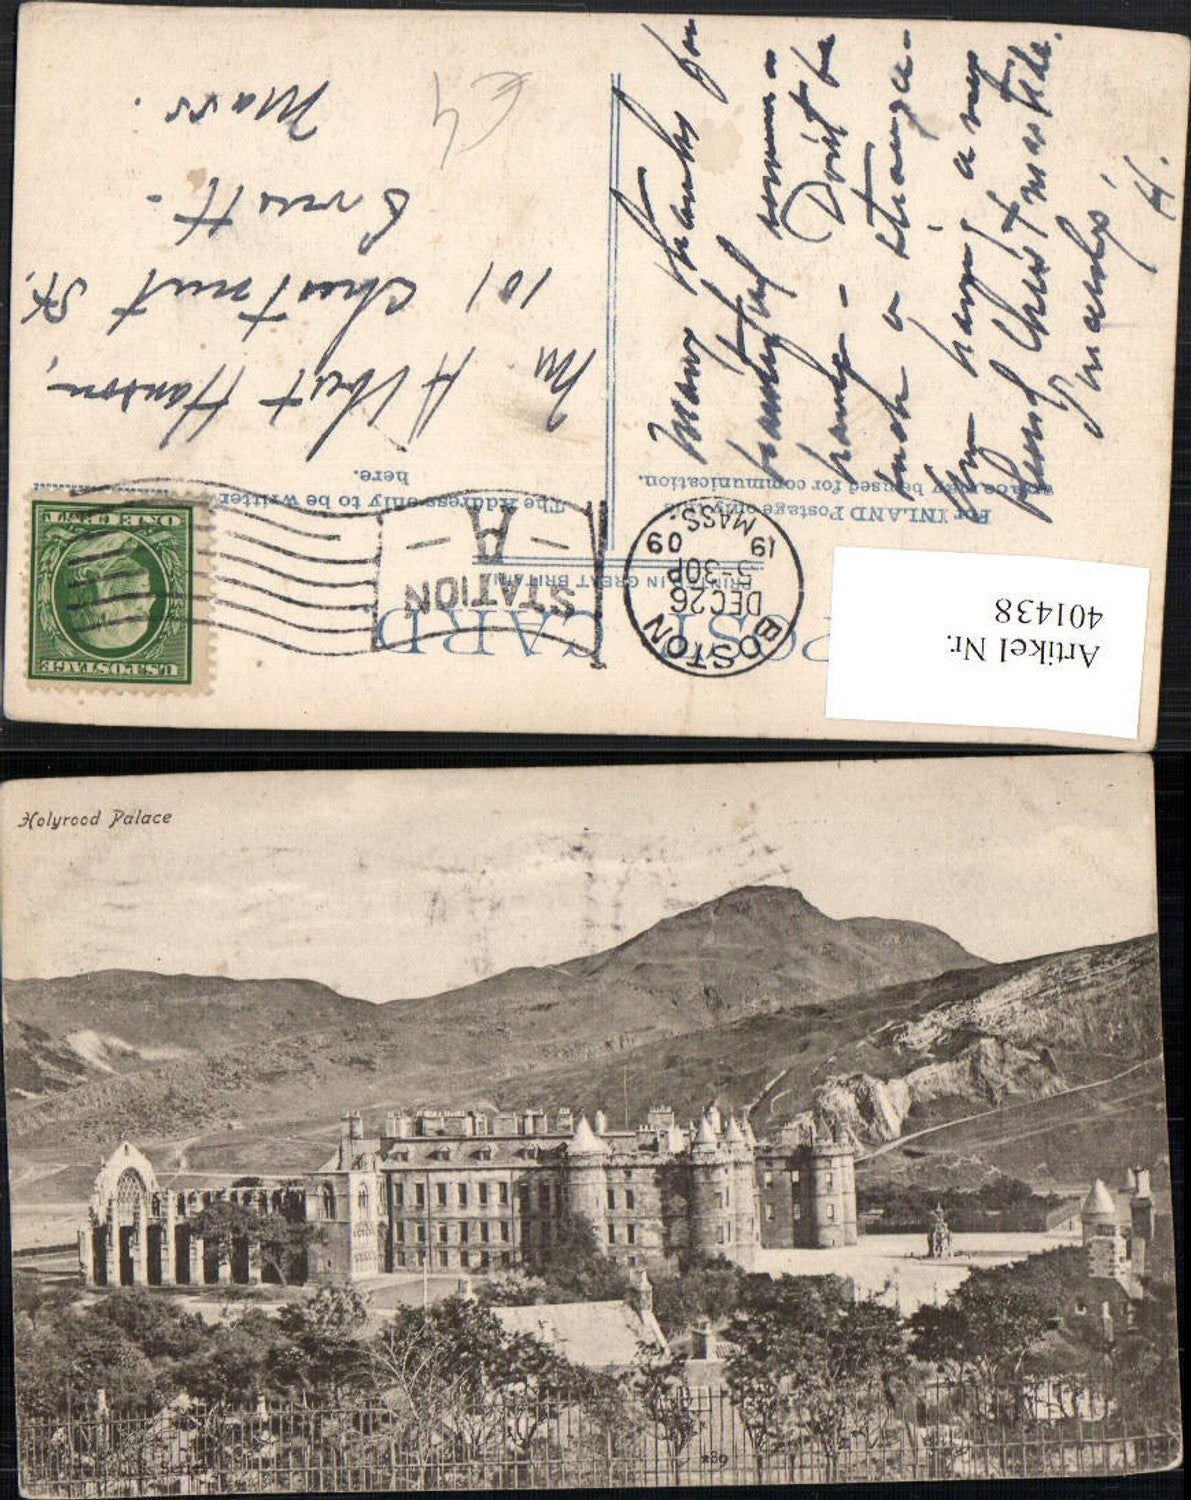 POST CARD
PRINTED IN GREAT BRITAIN
For INLAND Postage only this
space may be used for communication.
The Address only to be written
here.
BOSTON
DEC 26
5-30P
19 09
MASS.
STATION
- A -
U.S. POSTAGE
ONE CENT
Artikel Nr.
401438
Many thanks for
beautiful
Don't be
such a stranger
a very
Christmastide.
H.
Mr Albert Hanson,
101 Chestnut St.
Everett.
Mass.
Holyrood Palace
289